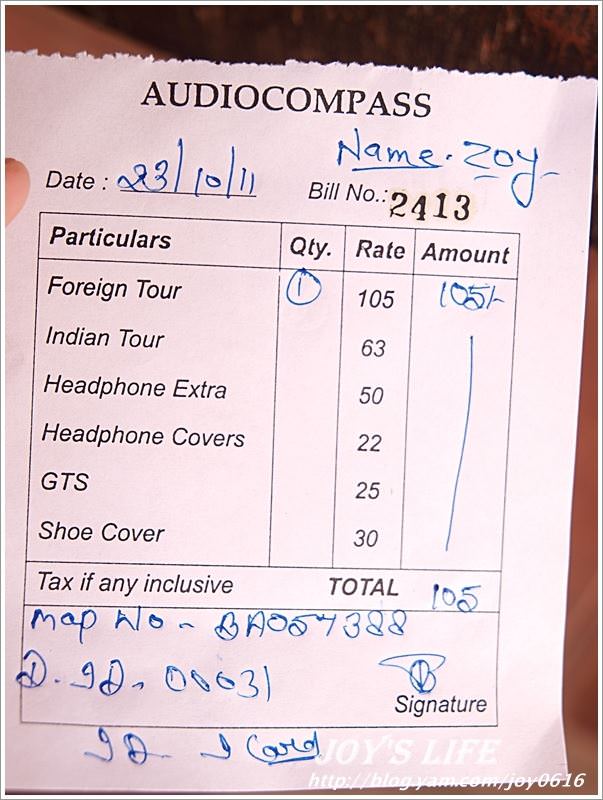 AUDIOCOMPASS
Name. Zoy
Date : 23/10/11 Bill No.: 2413
Particulars Qty. Rate Amount
Foreign Tour 1 105 105/-
Indian Tour 63
Headphone Extra 50
Headphone Covers 22
GTS 25
Shoe Cover 30
Tax if any inclusive TOTAL 105
Map No - BA057388
D. ID. 00031
Signature
ID - I Card
JOY'S LIFE
http://blog.yam.com/joy0616